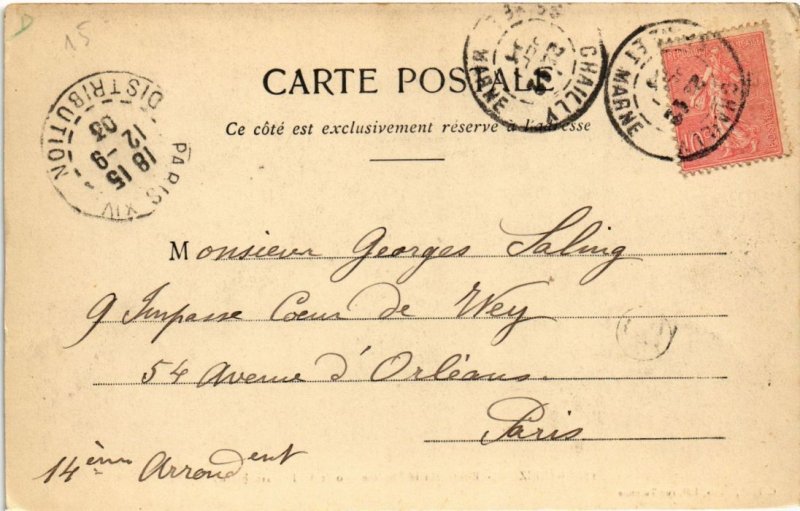 D 15
CARTE POSTALE
Ce côté est exclusivement réservé à l'adresse
CHAILLY
MARNE
CHAILLY
ET MARNE
PARIS XIV
18 15
12 -9
03
DISTRIBUTION
Monsieur Georges Saling
9 Impasse Coeur de Wey
54 Avenue d'Orléans
Paris
14ème Arrondent